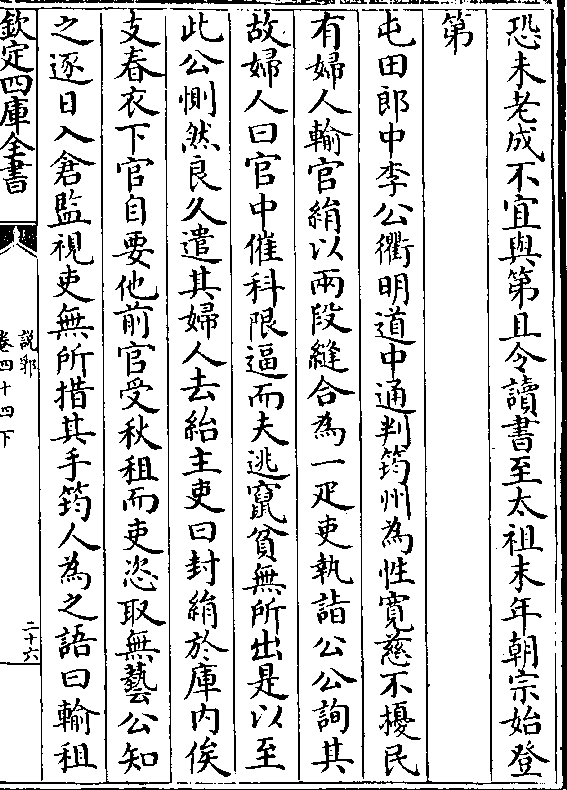 恐未老成不宜與第且令讀書至太祖末年朝宗始登
第
屯田郎中李公衢明道中通判筠州為性寛慈不擾民
有婦人輸官絹以兩段縫合為一疋吏執詣公公詢其
故婦人曰官中催科限逼而夫逃竄貧無所出是以至
此公惻然良久遣其婦人去紿主吏曰封絹於庫内俟
支春衣下官自要他前官受秋租而吏恣取無藝公知
之逐日入倉監視吏無所措其手筠人為之語曰輸租
欽定四庫全書
說郛
卷四十四下
二十六